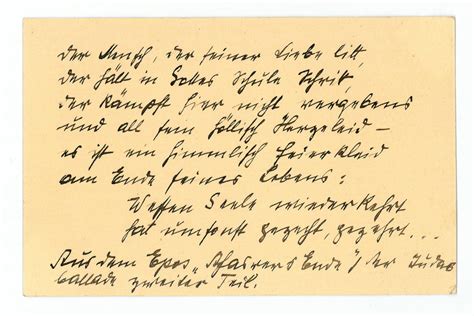 Der Mensch, der seiner Liebe litt,
der hält in Gottes Schule Schritt,
der kämpft hier nicht vergebens
und all sein höllisch Herzeleid –
es ist ein himmlisch Feierkleid
am Ende seines Lebens:
Wessen Seele wiederkehrt
hat umsonst gezecht, gezehrt...
Aus dem Epos „Ahasvers Ende“ / der Judas
ballade zweiter Teil.